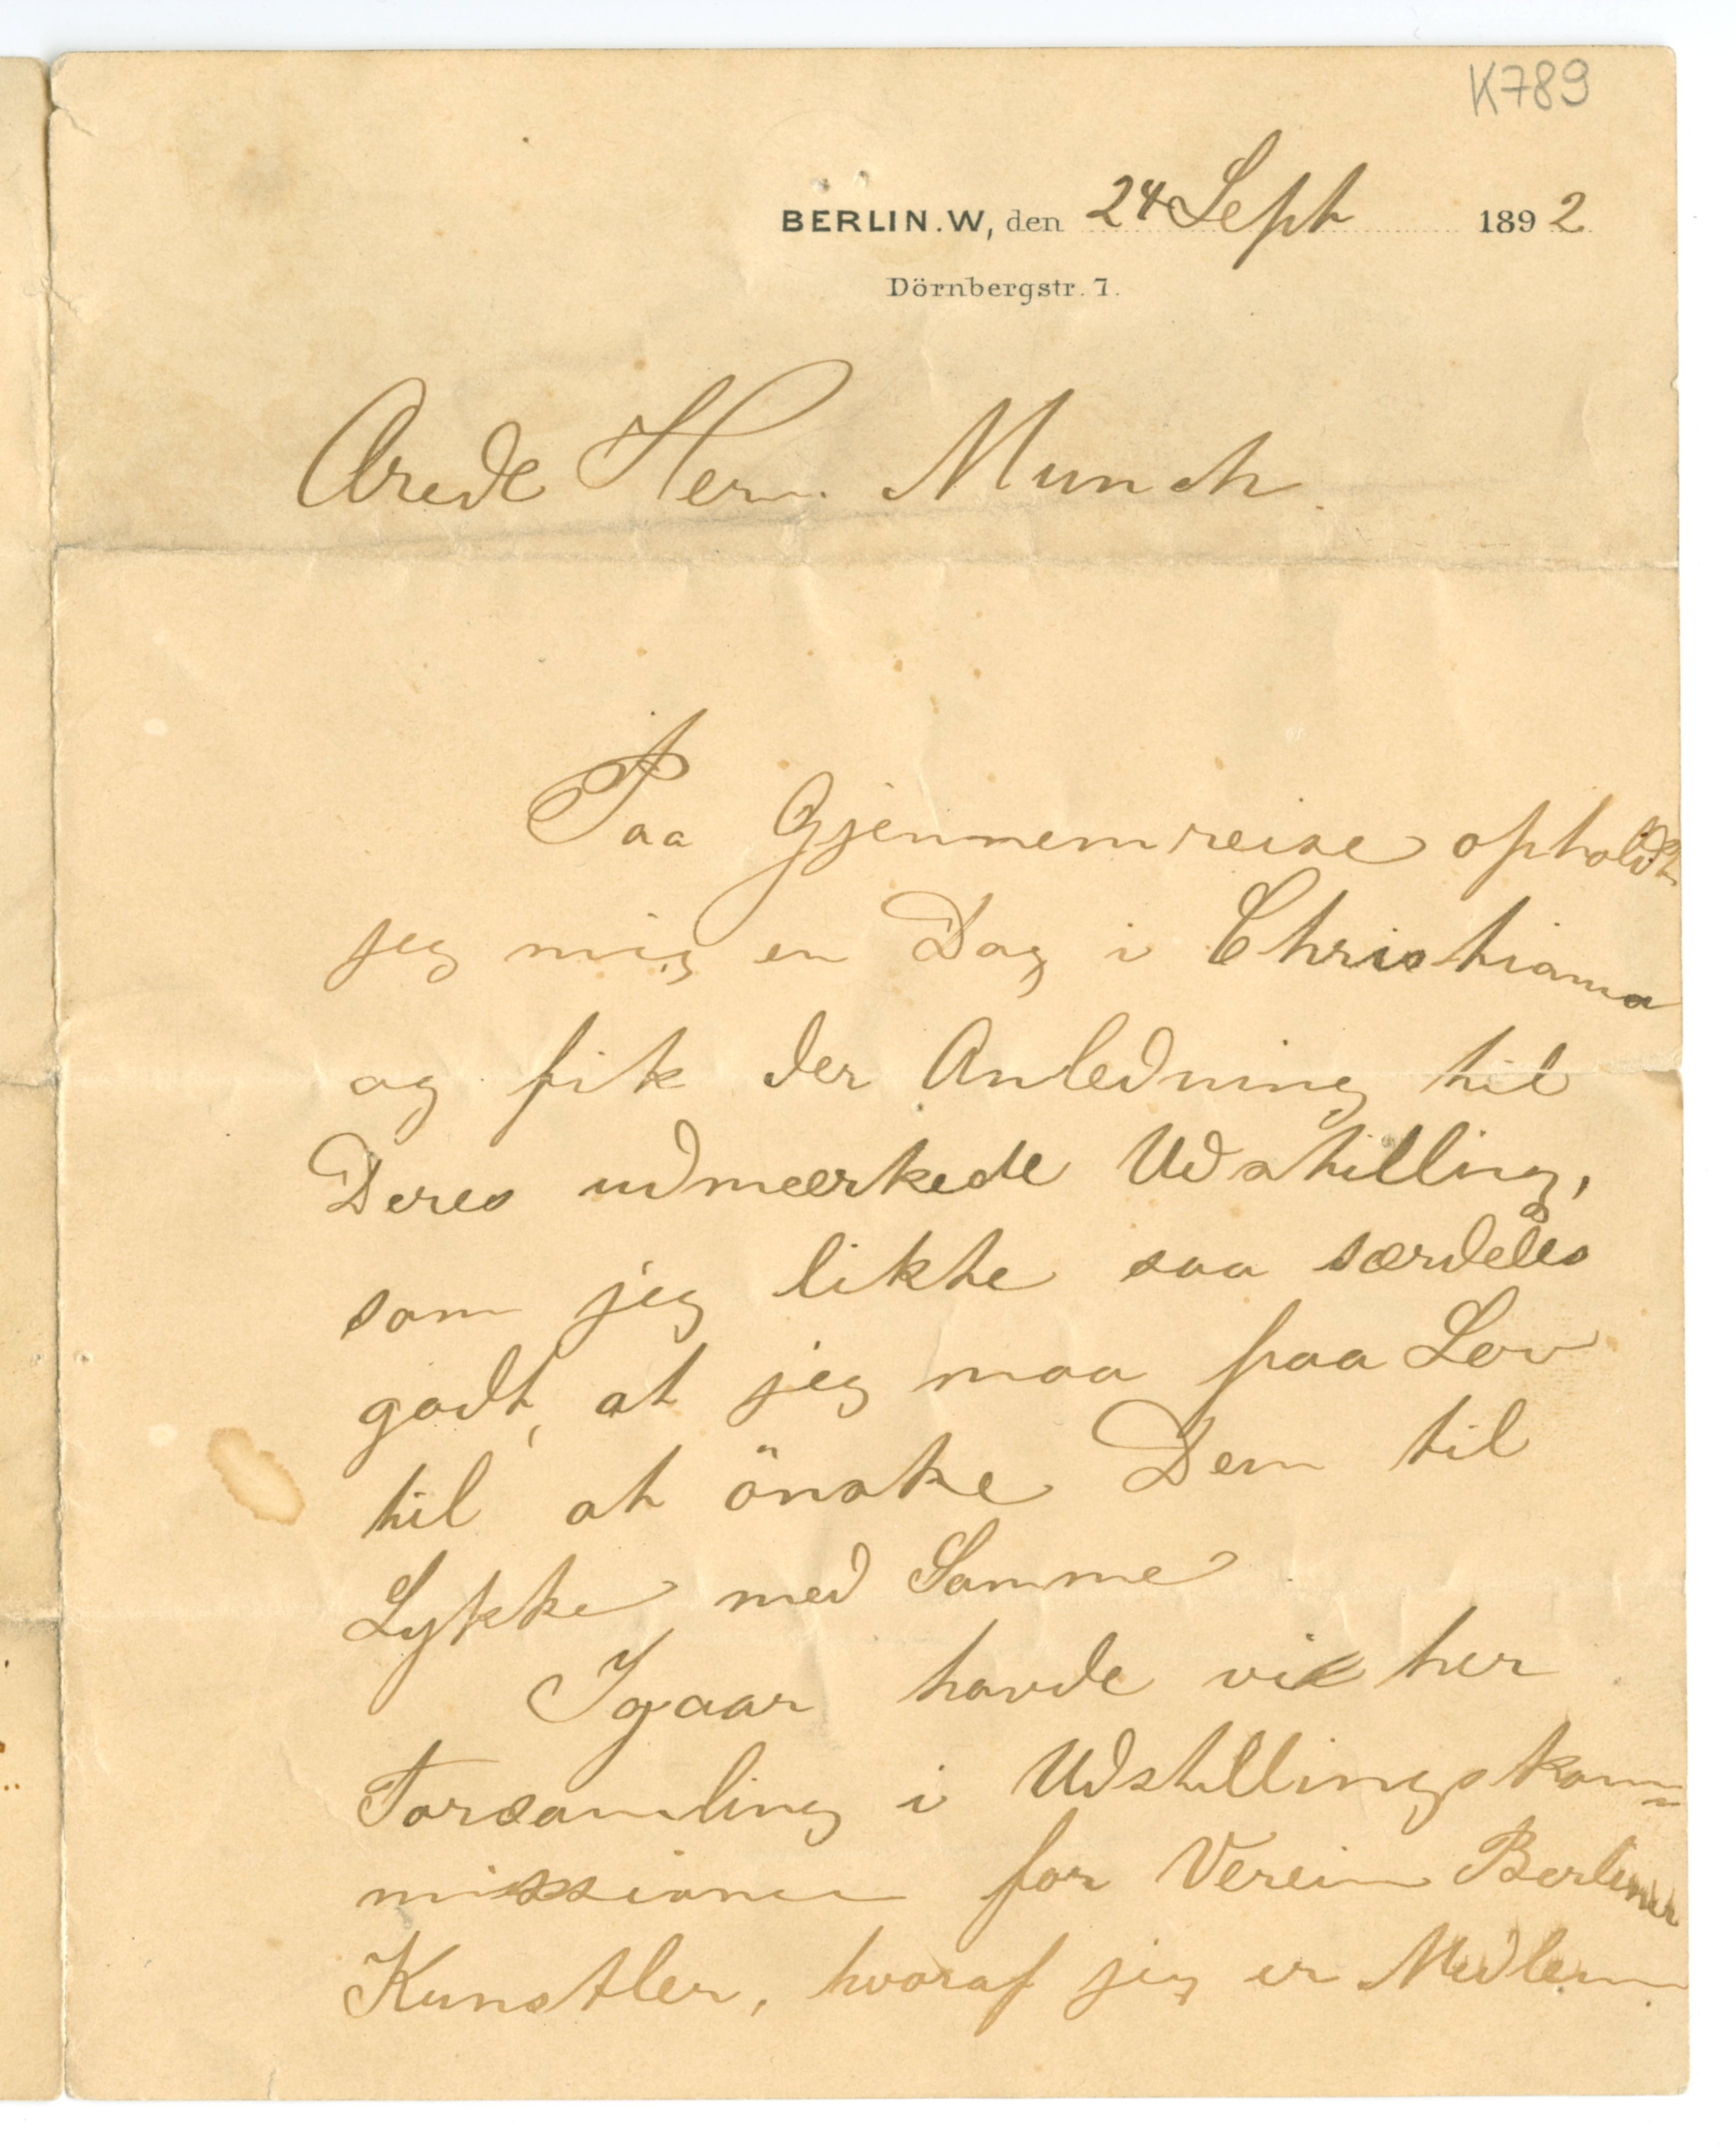 K789
BERLIN.W, den 24 Sept 1892
Dörnbergstr. 7.
Ærede Herr. Munch.
Paa Gjennemreise opholdt
jeg mig en Dag i Christiania
og fik der Anledning til
Deres udmærkede Udstilling,
som jeg likte saa særdeles
godt, at jeg maa faa Lov
til at önske Dem til
Lykke med Samme
Igaar havde vi her
Forsamling i Udstillingskom=
missionen for Verein Berliner
Kunstler, hvoraf jeg er Medlem.